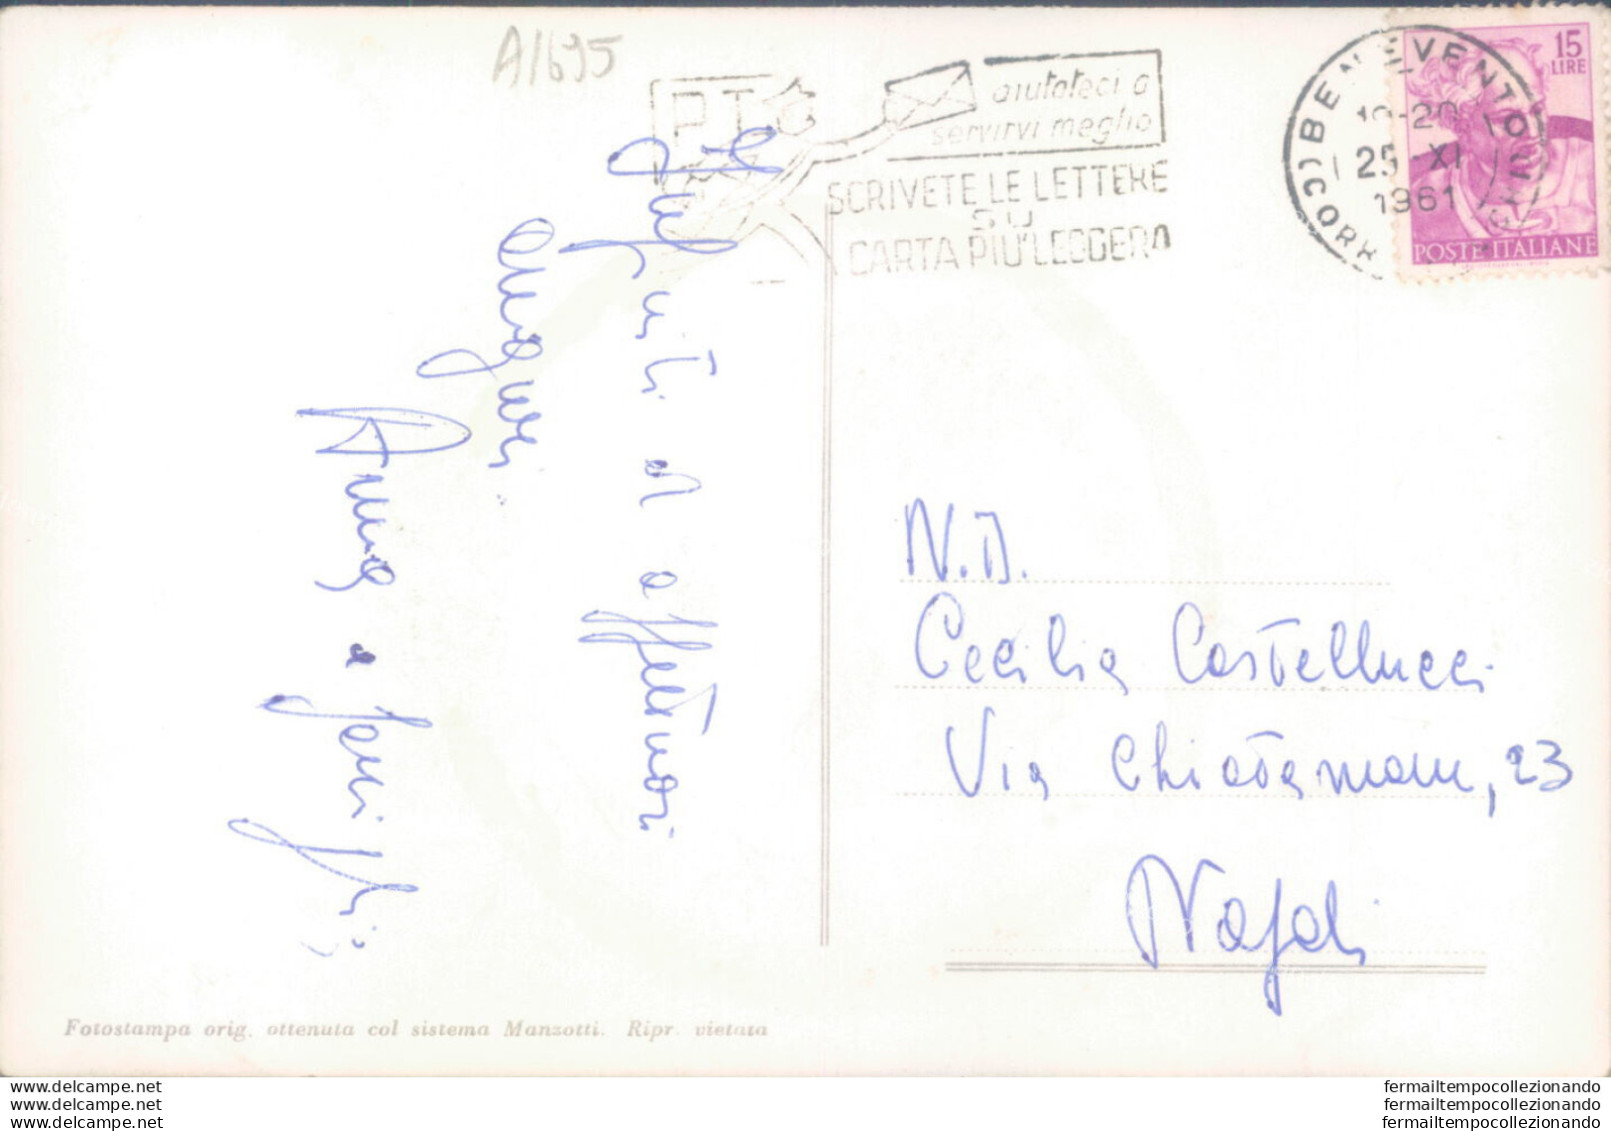 A1695
P.T.
aiutateci a
servirvi meglio
SCRIVETE LE LETTERE
SU
CARTA PIÙ LEGGERA
BENEVENTO
25 XI
1961
15
LIRE
POSTE ITALIANE
affettuosi
auguri
Anna e
N.D.
Cecilia Castellucci
Via Chiatamone, 23
Napoli
Fotostampa orig. ottenuta col sistema Manzotti. Ripr. vietata
www.delcampe.net
www.delcampe.net
www.delcampe.net
fermailtempocollezionando
fermailtempocollezionando
fermailtempocollezionando